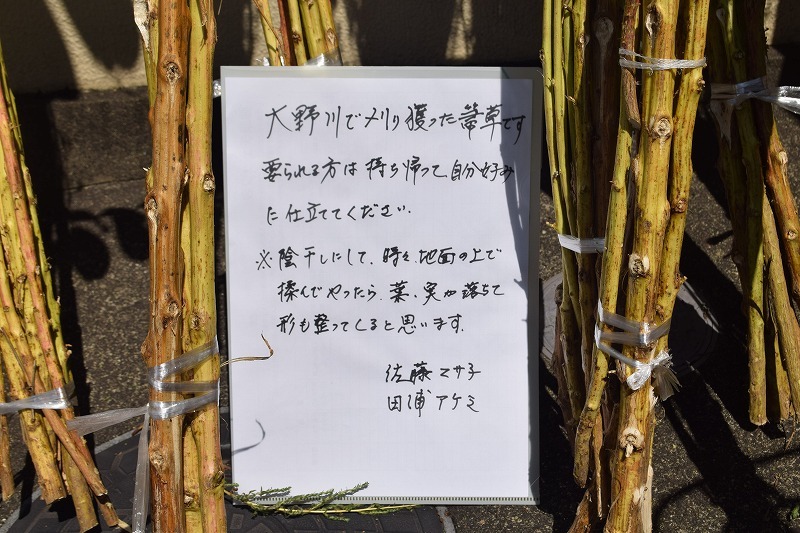 大野川で刈り獲った箒草です
要られる方は持ち帰って自分好み
に仕立ててください.
※陰干しにして、時々、地面の上で
揉んでやったら、葉、実が落ちて
形も整ってくると思います.
佐藤マサ子
田浦アケミ